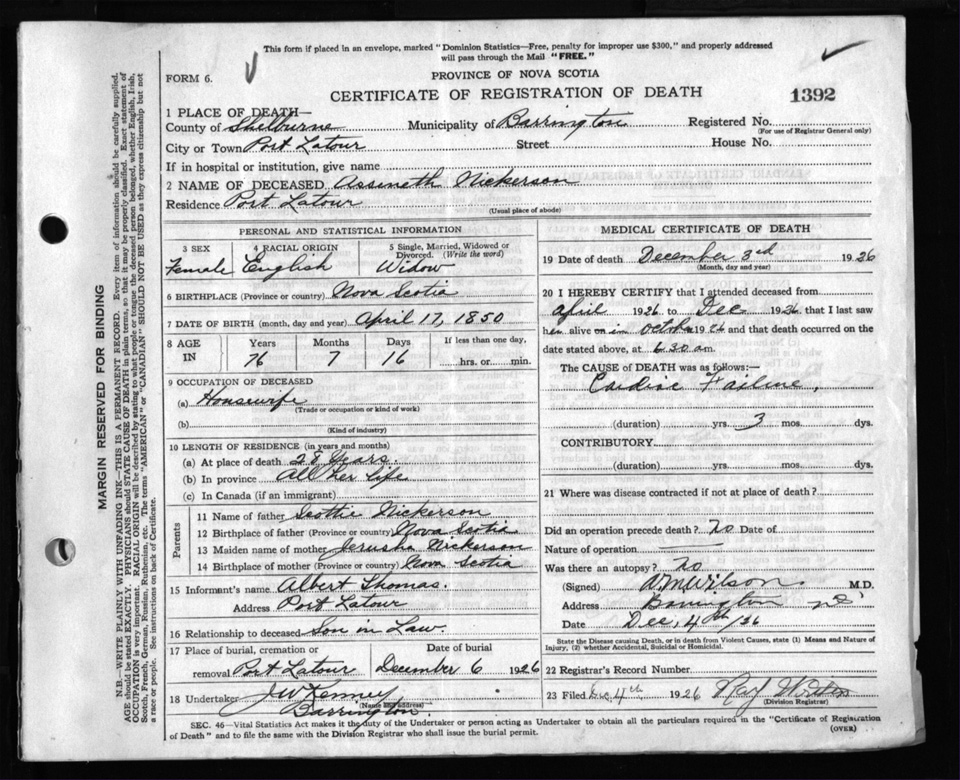 This form if placed in an envelope, marked "Dominion Statistics—Free, penalty for improper use $300," and properly addressed
will pass through the Mail "FREE."
FORM 6.
PROVINCE OF NOVA SCOTIA
CERTIFICATE OF REGISTRATION OF DEATH
1392
1 PLACE OF DEATH—
County of Shelburne Municipality of Barrington Registered No.
(For use of Registrar General only)
City or Town Port Latour Street House No.
If in hospital or institution, give name
2 NAME OF DECEASED Asseneth Nickerson
Residence Port Latour
(Usual place of abode)
PERSONAL AND STATISTICAL INFORMATION
3 SEX 4 RACIAL ORIGIN 5 Single, Married, Widowed or
Divorced. (Write the word)
Female English Widow
6 BIRTHPLACE (Province or country) Nova Scotia
7 DATE OF BIRTH (month, day and year) April 17, 1850
8 AGE Years Months Days If less than one day,
IN 76 7 16 hrs. or min.
9 OCCUPATION OF DECEASED
(a) Housewife
(Trade or occupation or kind of work)
(b)
(Kind of industry)
10 LENGTH OF RESIDENCE (in years and months)
(a) At place of death 28 Years.
(b) In province All her life
(c) In Canada (if an immigrant)
Parents
11 Name of father Scottie Nickerson
12 Birthplace of father (Province or country) Nova Scotia
13 Maiden name of mother Jerusha Nickerson
14 Birthplace of mother (Province or country) Nova Scotia
15 Informant's name Albert Thomas.
Address Port Latour
16 Relationship to deceased Son in Law.
17 Place of burial, cremation or Date of burial
removal Port Latour December 6 1926
18 Undertaker J W Kenney,
(Name and address)
Barrington.
MEDICAL CERTIFICATE OF DEATH
19 Date of death December 3rd 1926
(Month, day and year)
20 I HEREBY CERTIFY that I attended deceased from
April 1926 to Dec 1926, that I last saw
her alive on in October 1926 and that death occurred on the
date stated above, at 6.30 am.
The CAUSE of DEATH was as follows:—
Cardiac Failure,
(duration) yrs. 3 mos. dys.
CONTRIBUTORY
(duration) yrs. mos. dys.
21 Where was disease contracted if not at place of death?
Did an operation precede death? no Date of
Nature of operation
Was there an autopsy? no
(Signed) Wilson M.D.
Address Barrington NS
Date Dec, 4th/26
State the Disease causing Death, or in death from Violent Causes, state (1) Means and Nature of
Injury, (2) whether Accidental, Suicidal or Homicidal.
22 Registrar's Record Number
23 Filed Dec 4th 1926
(Division Registrar)
SEC. 46—Vital Statistics Act makes it the duty of the Undertaker or person acting as Undertaker to obtain all the particulars required in the "Certificate of Registration
of Death" and to file the same with the Division Registrar who shall issue the burial permit.
(OVER)
MARGIN RESERVED FOR BINDING
N.B.—WRITE PLAINLY WITH UNFADING INK—THIS IS A PERMANENT RECORD. Every item of information should be carefully supplied.
AGE should be stated EXACTLY. PHYSICIANS should STATE CAUSE OF DEATH in plain terms, so that it may be properly classified. Exact statement of
OCCUPATION is very important. RACIAL ORIGIN will be described by stating to what people or tongue the deceased person belonged, whether English, Irish,
Scotch, French, German, Russian, Ruthenian, etc. The terms "AMERICAN" or "CANADIAN" SHOULD NOT BE USED as they express citizenship but not
a race or people. See instructions on back of Certificate.